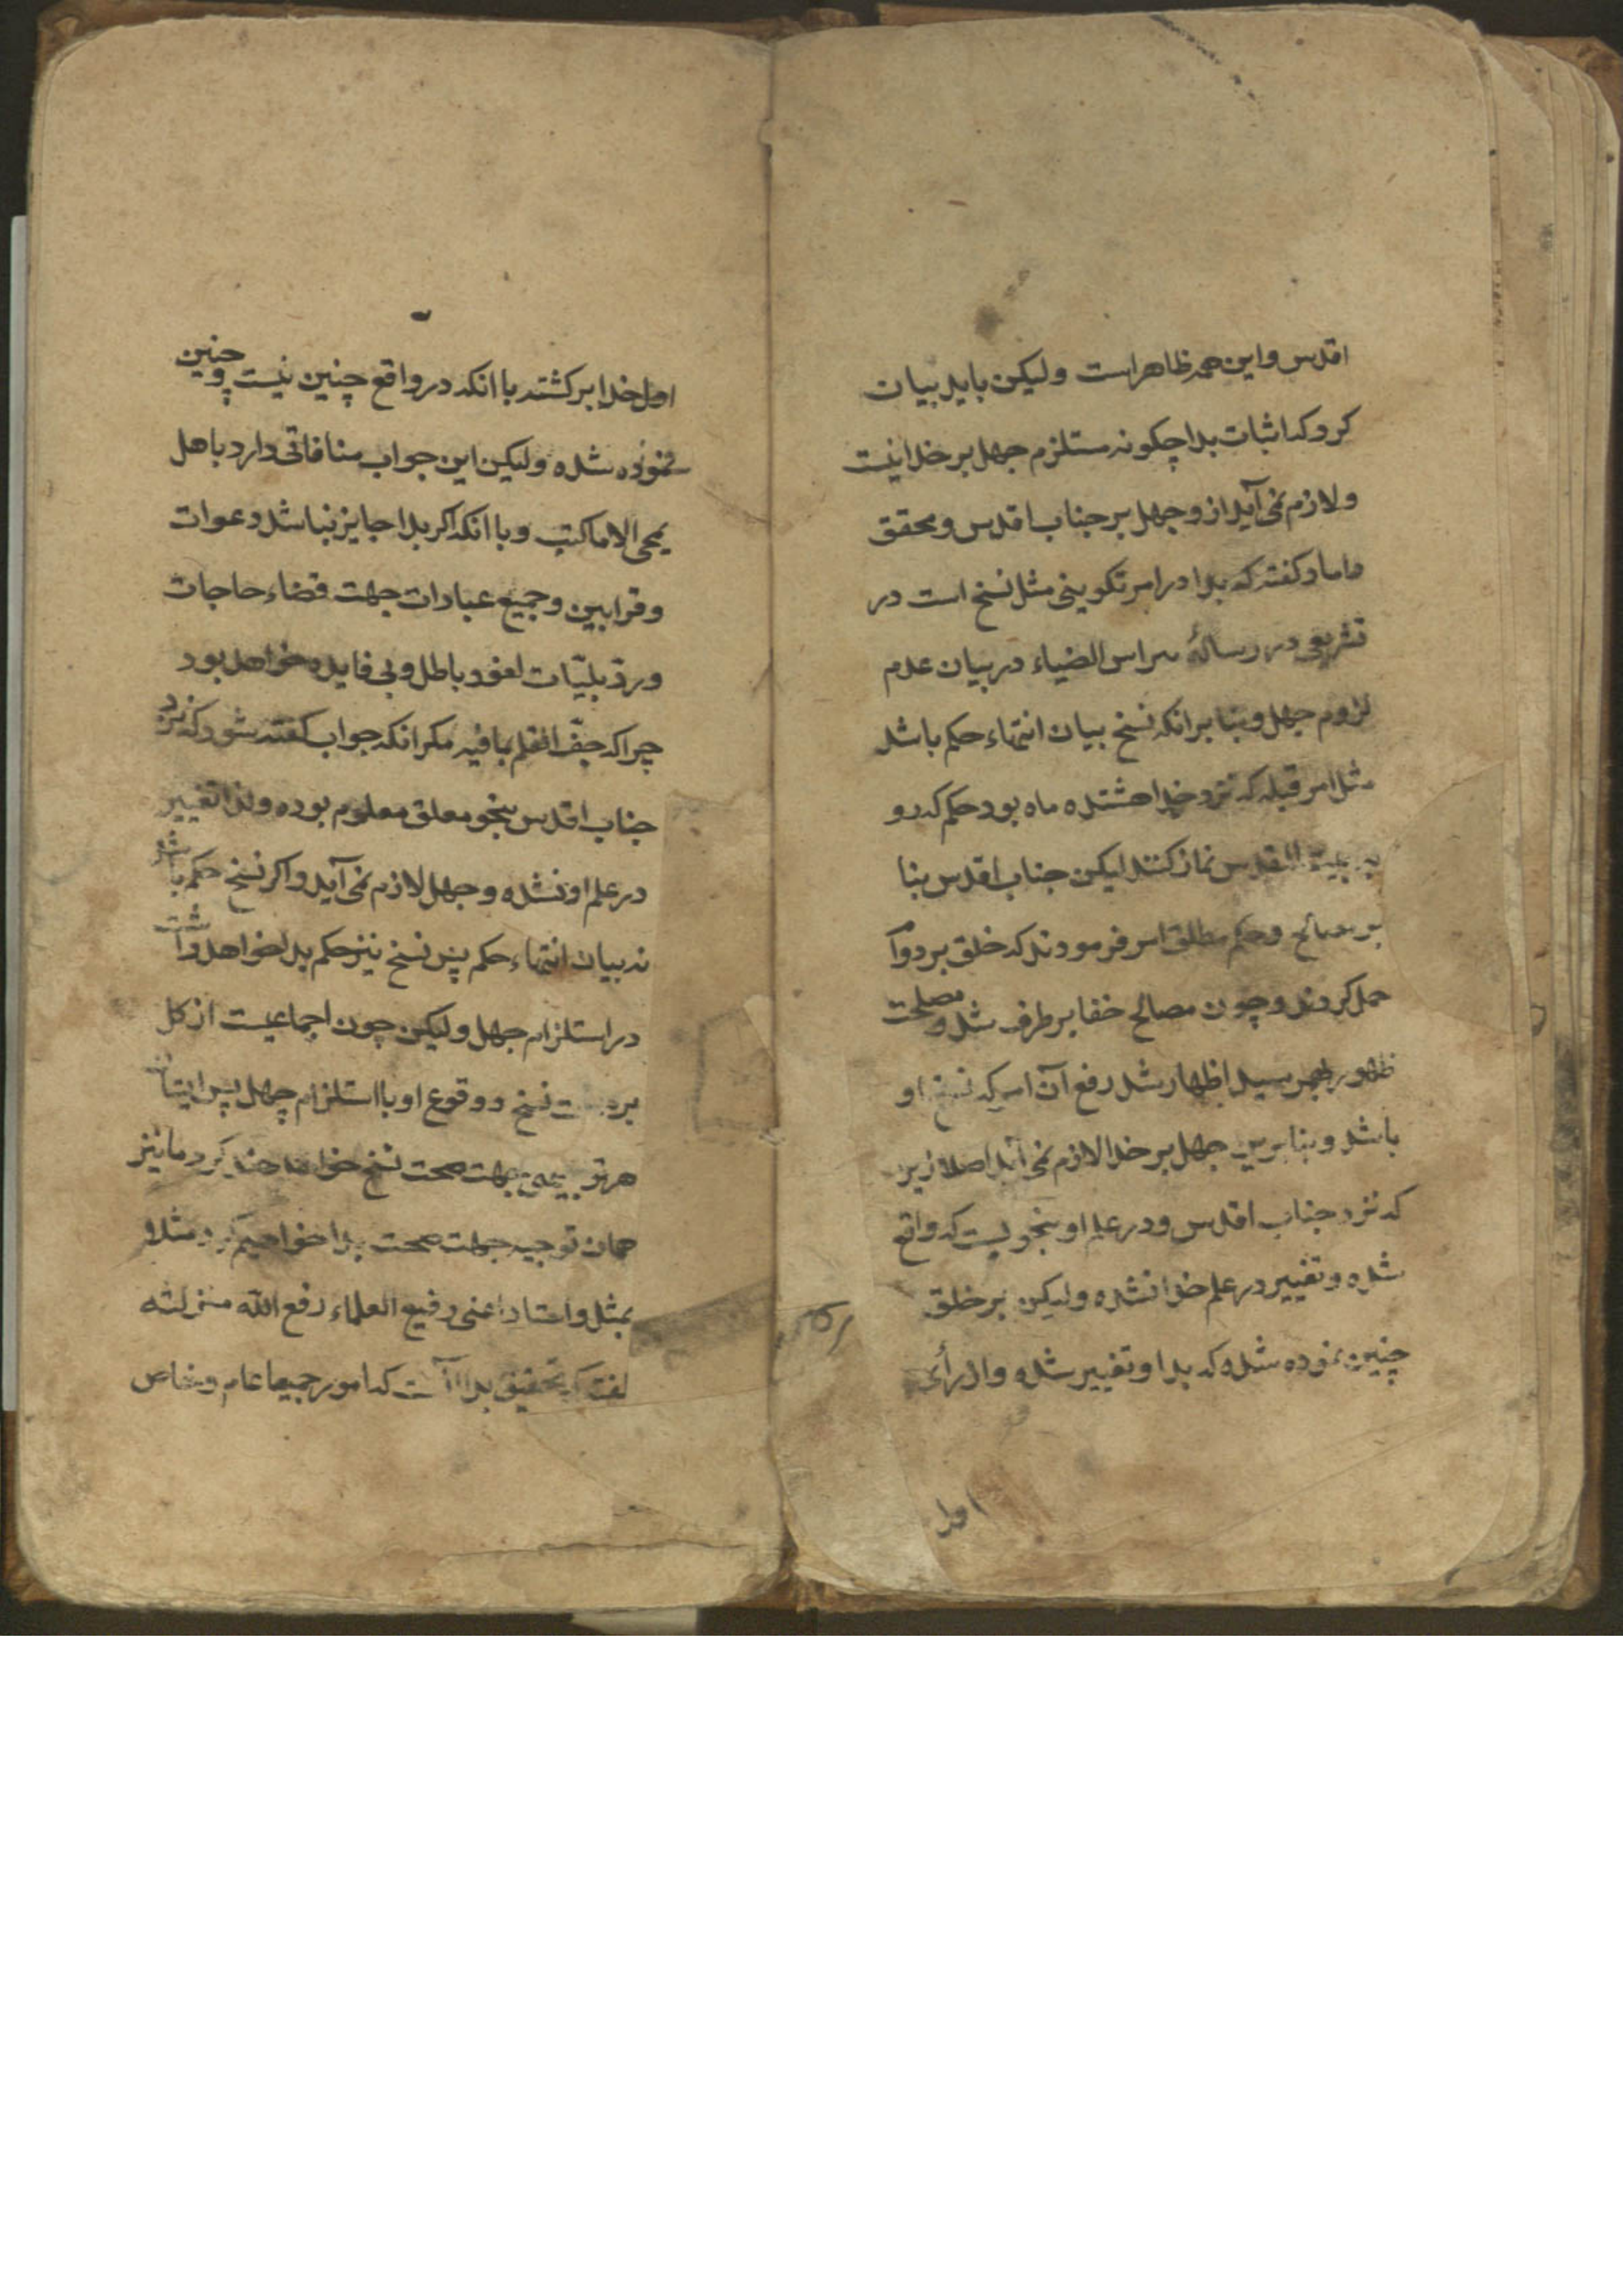 اقدس و این همه ظاهر است ولیکن باید بیان
کرد که اثبات بدا چگونه مستلزم جهل بر خدا نیست
و لازم نمی آید از و جهل بر جناب اقدس و محقق
داماد کفته که بدا در امر تکوینی مثل نسخ است در
تشریعی در رسالهٔ نبراس الضیاء در بیان عدم
لزوم جهل و بنا بر انکه نسخ بیان انتهاء حکم باشد
مثل امر قبله که نزد خدا هشتده ماه بود حکم که رو
به بیت المقدس نماز کنند لیکن جناب اقدس بنا
بر مصالح و حکم مطلق امر فرمودند که خلق بر دوام
حمل کردند و چون مصالح خفا بر طرف شد و مصلحت
ظهور بهم رسید اظهار شد رفع آن امر که نسخ او
باشد و بنا برین جهل بر خدا لازم نمی آید اصلا زیرا
که نزد جناب اقدس و در علم او بنحویست که واقع
شده و تغییر در علم خدا نشده ولیکن بر خلق
چنین نموده شده که بدا و تغییر شده و از رأی
اول
اول خدا برکشته با انکه در واقع چنین نیست و چنین
نموده شده ولیکن این جواب منافاتی دارد باهل
یمحی الا ما کتب و با انکه اکر بدا جایز نباشد دعوات
و قرابین و جمیع عبادات جهت قضاء حاجات
و ردّ بلیّات لغو و باطل و بی فایده خواهد بود
چرا که جفّ القلم بما فیه مکر انکه جواب کفته شود که نزد
جناب اقدس بنحو معلق معلوم بوده و لذا تغییر
در علم او نشده و جهل لازم نمی آید و اکر نسخ حکم باشد
نه بیان انتهاء حکم پس نسخ نیز حکم بدا خواهد داشت
در استلزام جهل ولیکن چون اجماعیست از کل
بر صحت نسخ و وقوع او با استلزام جهل پس ایشان
هر توجیهی جهت صحت نسخ خواهند کرد ما نیز
همان توجیه جهت صحت بدا خواهیم کرد مثلا
بمثل و استاد اعنی رفیع العلماء رفع الله منزلته
کفته که تحقیق بدا آنست که امور جمیعا عام و خاص